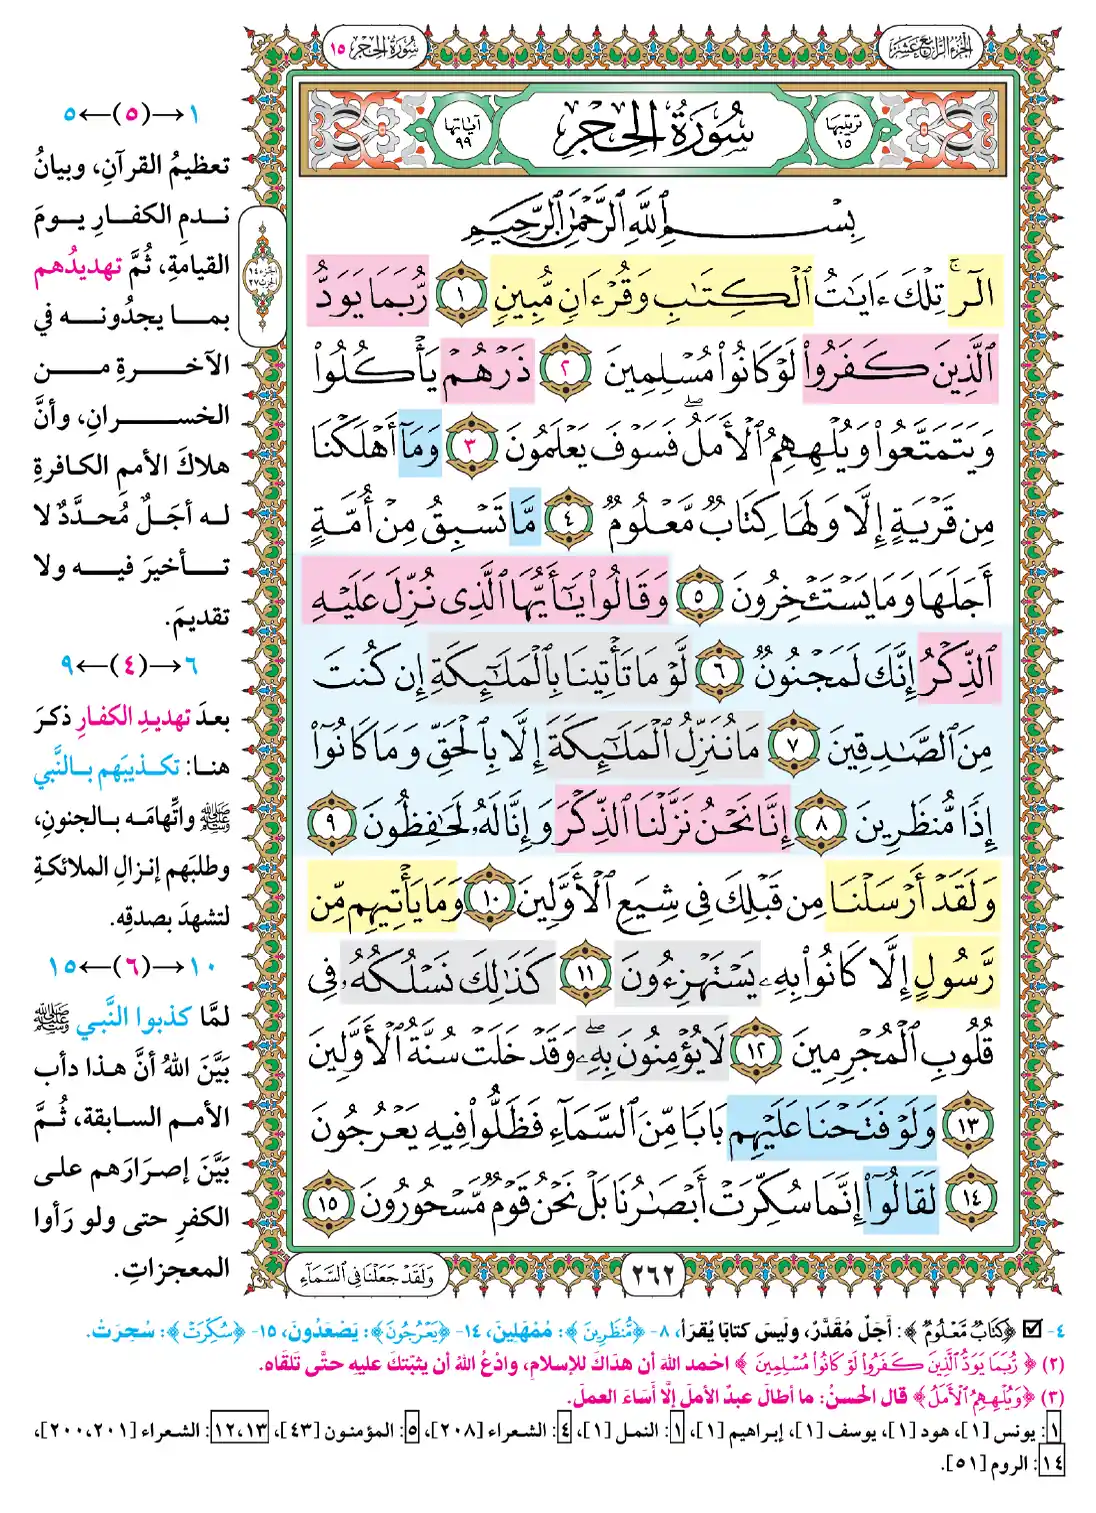 الجزء الرابع عشر
سورة الحجر ١٥
ترتيبها ١٥
سُورَةُ الحِجرِ
آياتها ٩٩
بِسْمِ ٱللَّهِ ٱلرَّحْمَٰنِ ٱلرَّحِيمِ
الٓر ۚ تِلْكَ ءَايَٰتُ ٱلْكِتَٰبِ وَقُرْءَانٍ مُّبِينٍ ١ رُّبَمَا يَوَدُّ
ٱلَّذِينَ كَفَرُوا۟ لَوْ كَانُوا۟ مُسْلِمِينَ ٢ ذَرْهُمْ يَأْكُلُوا۟
وَيَتَمَتَّعُوا۟ وَيُلْهِهِمُ ٱلْأَمَلُ ۖ فَسَوْفَ يَعْلَمُونَ ٣ وَمَآ أَهْلَكْنَا
مِن قَرْيَةٍ إِلَّا وَلَهَا كِتَابٌ مَّعْلُومٌ ٤ مَّا تَسْبِقُ مِنْ أُمَّةٍ
أَجَلَهَا وَمَا يَسْتَـْٔخِرُونَ ٥ وَقَالُوا۟ يَٰٓأَيُّهَا ٱلَّذِى نُزِّلَ عَلَيْهِ
ٱلذِّكْرُ إِنَّكَ لَمَجْنُونٌ ٦ لَّوْ مَا تَأْتِينَا بِٱلْمَلَٰٓئِكَةِ إِن كُنتَ
مِنَ ٱلصَّٰدِقِينَ ٧ مَا نُنَزِّلُ ٱلْمَلَٰٓئِكَةَ إِلَّا بِٱلْحَقِّ وَمَا كَانُوٓا۟
إِذًا مُّنظَرِينَ ٨ إِنَّا نَحْنُ نَزَّلْنَا ٱلذِّكْرَ وَإِنَّا لَهُۥ لَحَٰفِظُونَ ٩
وَلَقَدْ أَرْسَلْنَا مِن قَبْلِكَ فِى شِيَعِ ٱلْأَوَّلِينَ ١٠ وَمَا يَأْتِيهِم مِّن
رَّسُولٍ إِلَّا كَانُوا۟ بِهِۦ يَسْتَهْزِءُونَ ١١ كَذَٰلِكَ نَسْلُكُهُۥ فِى
قُلُوبِ ٱلْمُجْرِمِينَ ١٢ لَا يُؤْمِنُونَ بِهِۦ ۖ وَقَدْ خَلَتْ سُنَّةُ ٱلْأَوَّلِينَ
١٣ وَلَوْ فَتَحْنَا عَلَيْهِم بَابًا مِّنَ ٱلسَّمَآءِ فَظَلُّوا۟ فِيهِ يَعْرُجُونَ
١٤ لَقَالُوٓا۟ إِنَّمَا سُكِّرَتْ أَبْصَٰرُنَا بَلْ نَحْنُ قَوْمٌ مَّسْحُورُونَ ١٥
٢٦٢
وَلَقَدْ جَعَلْنَا فِي السَّمَاءِ
الجزء ١٤
الحزب ٢٧
١→(٥)←٥
تعظيمُ القرآنِ، وبيانُ
ندمِ الكفارِ يومَ
القيامةِ، ثُمَّ تهديدُهم
بما يجدُونه في
الآخرةِ من
الخسرانِ، وأنَّ
هلاكَ الأممِ الكافرةِ
له أجَلٌ مُحدَّدٌ لا
تأخيرَ فيه ولا
تقديمَ.
٦→(٤)←٩
بعدَ تهديدِ الكفارِ ذكرَ
هنا: تكذيبَهم بالنَّبي
ﷺ واتِّهامَه بالجنونِ،
وطلبَهم إنزالَ الملائكةِ
لتشهدَ بصدقِه.
١٠→(٦)←١٥
لمَّا كذبوا النَّبي ﷺ
بيَّنَ اللهُ أنَّ هذا دأب
الأمم السابقة، ثُمَّ
بيَّنَ إصرَارَهم على
الكفرِ حتى ولو رَأوا
المعجزاتِ.
☑ ٤- ﴿كِتَابٌ مَّعْلُومٌ﴾: أَجَلٌ مُقَدَّرٌ، وليسَ كتابًا يُقرَأ، ٨- ﴿مُّنظَرِينَ﴾: مُمْهَلِينَ، ١٤- ﴿يَعْرُجُونَ﴾: يَصْعَدُونَ، ١٥- ﴿سُكِّرَتْ﴾: سُحِرَتْ.
(٢) ﴿رُّبَمَا يَوَدُّ الَّذِينَ كَفَرُوا لَوْ كَانُوا مُسْلِمِينَ﴾ احمد اللهَ أن هدَاكَ للإسلامِ، وادْعُ اللهُ أن يثبّتكَ عليهِ حتَّى تلقَاه.
(٣) ﴿وَيُلْهِهِمُ الْأَمَلُ﴾ قال الحسنُ: ما أطالَ عبدٌ الأملَ إلَّا أسَاءَ العملَ.
١: يونس [١]، هود [١]، يوسف [١]، إبراهيم [١]، ١: النمل [١]، ٤: الشعراء [٢٠٨]، ٥: المؤمنون [٤٣]، ١٢،١٣: الشعراء [٢٠٠،٢٠١]،
١٤: الروم [٥١].